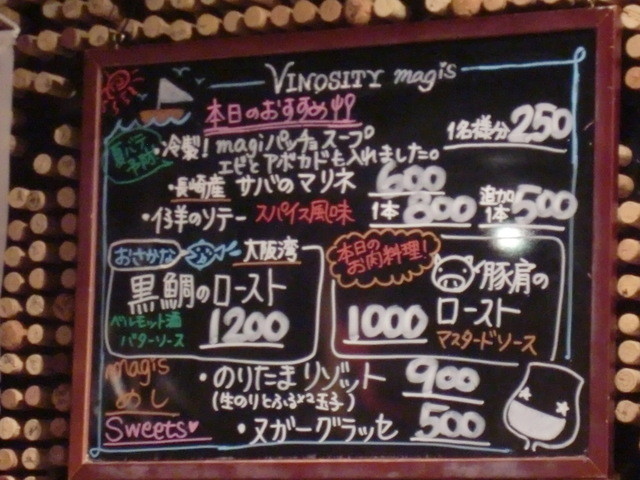 VINOSITY magis
本日のおすすめ
夏バテ予防
・冷製!magiパッチョスープ 1名様分 250
エビとアボカドも入れました。
・長崎産 サバのマリネ 600
・仔羊のソテー スパイス風味 1本 800 追加1本 500
おさかな 大阪湾
黒鯛のロースト
ベルモット酒
バターソース 1200
本日の
お肉料理!
豚肩の
ロースト
1000 マスタードソース
magis
めし
・のりたまリゾット 900
(生のりとふるふる玉子)
Sweets ・ヌガーグラッセ 500